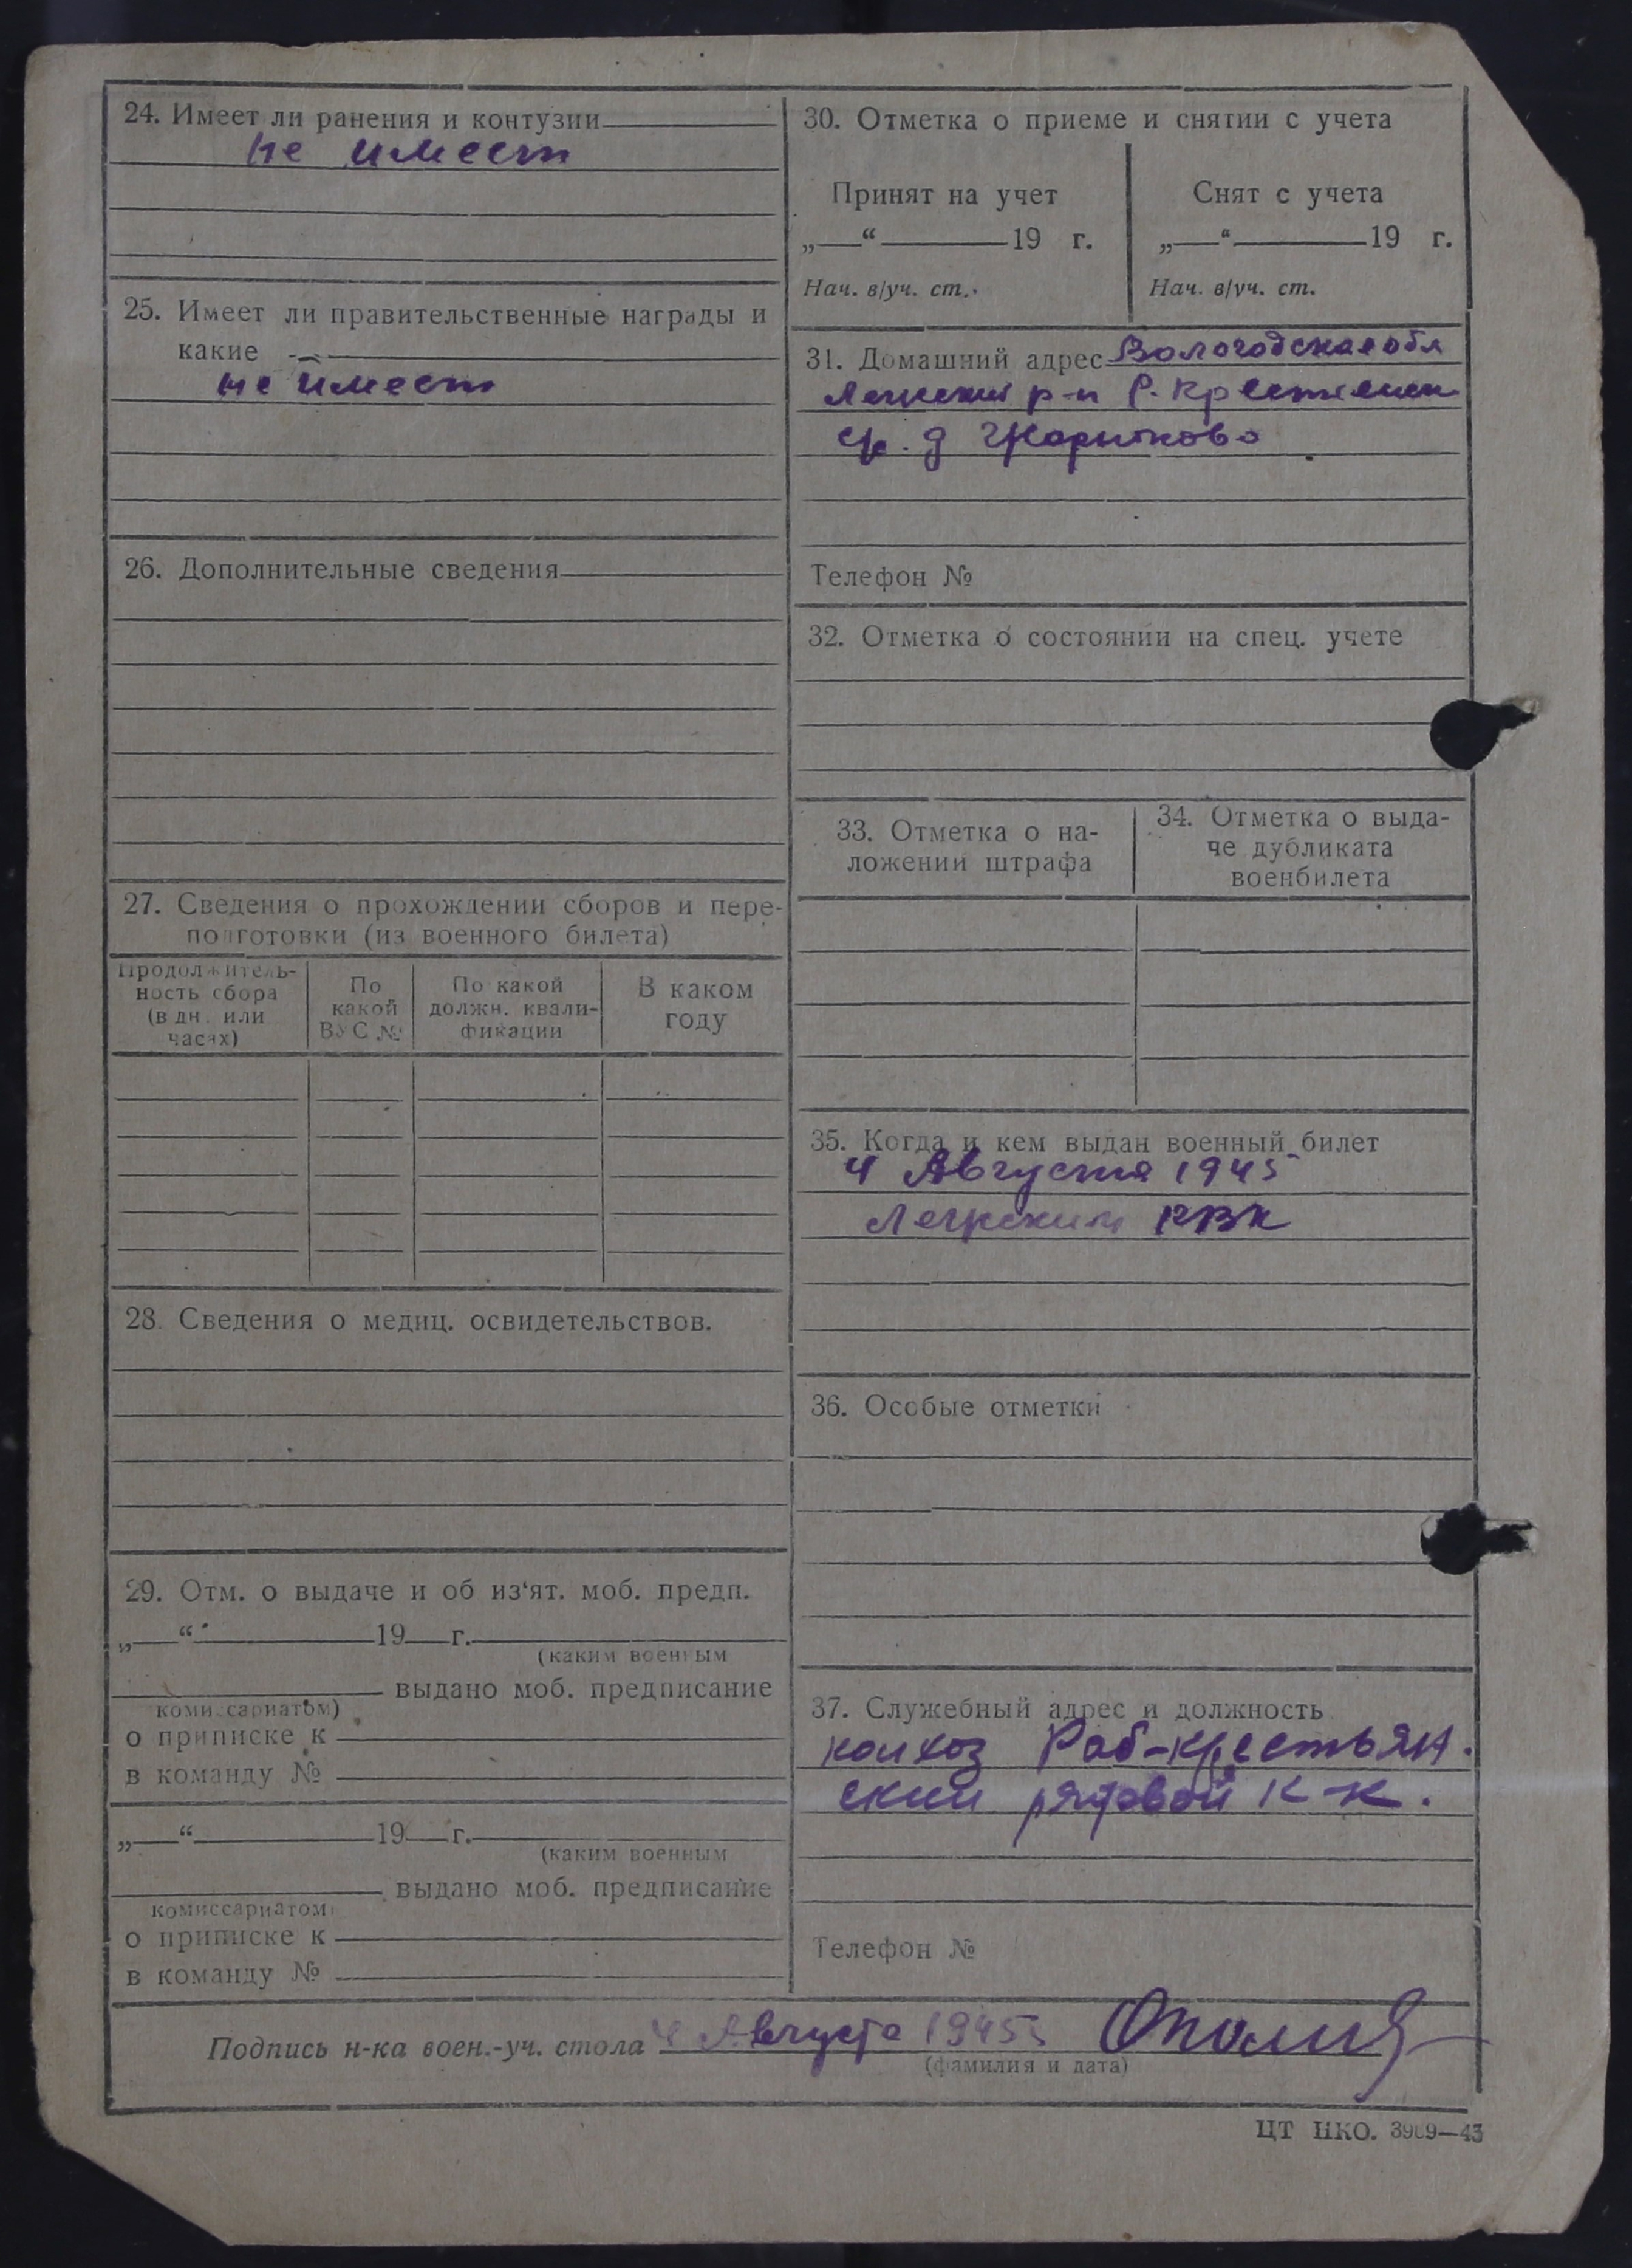 24. Имеет ли ранения и контузии
не имеет
25. Имеет ли правительственные награды и
какие
не имеет
26. Дополнительные сведения
27. Сведения о прохождении сборов и пере-
подготовки (из военного билета)
Продолжитель-
ность сбора
(в дн. или
часах)
По
какой
ВУС №
По какой
должн. квали-
фикации
В каком
году
28. Сведения о медиц. освидетельствов.
29. Отм. о выдаче и об из‘ят. моб. предп.
„ “ 19 г.
(каким военным
выдано моб. предписание
комиссариатом)
о приписке к
в команду №
„ “ 19 г.
(каким военным
выдано моб. предписание
комиссариатом)
о приписке к
в команду №
30. Отметка о приеме и снятии с учета
Принят на учет
„ “ 19 г.
Нач. в/уч. ст.
Снят с учета
„ “ 19 г.
Нач. в/уч. ст.
31. Домашний адрес Вологодская обл
р-н Р. Крестьянск
д
Телефон №
32. Отметка о состоянии на спец. учете
33. Отметка о на-
ложении штрафа
34. Отметка о выда-
че дубликата
военбилета
35. Когда и кем выдан военный билет
4 Августа 1945
РВК
36. Особые отметки
37. Служебный адрес и должность
колхоз Раб-крестьян.
ский рядовой к-к.
Телефон №
Подпись н-ка воен.-уч. стола 4 Августа 1945
(фамилия и дата)
ЦТ НКО. 3989—43